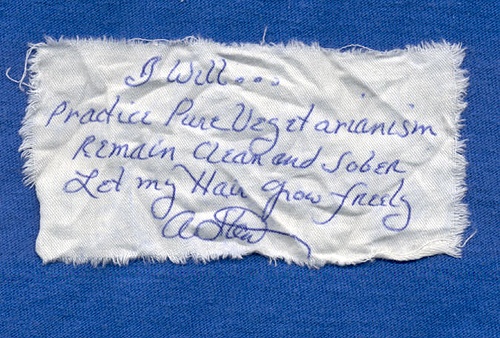 I Will...
Practice Pure Vegetarianism
Remain Clean and Sober
Let my Hair grow freely